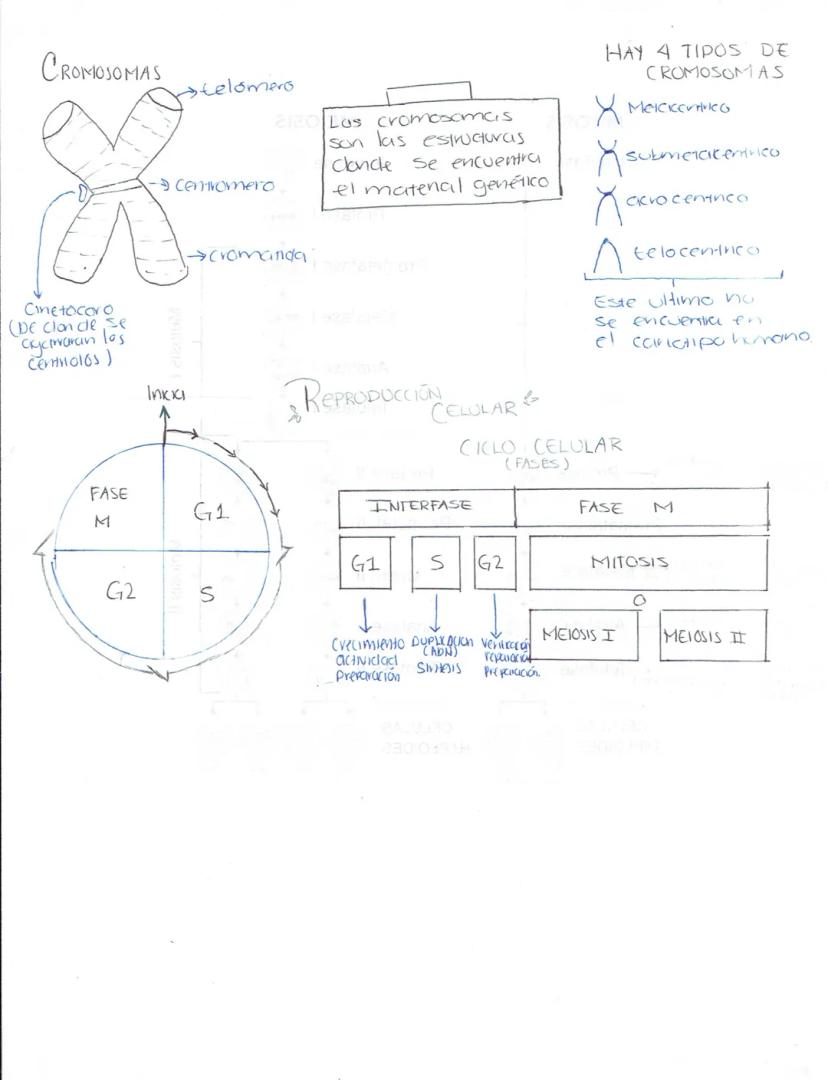 CROMOSOMAS
telómero
centromero
cromatida
Cinetocoro
(DE donde se
agarraran los
centriolos)
Los cromosomas
son las estructuras
donde se encuentra
el material genético
HAY 4 TIPOS DE
CROMOSOMAS
Metacentrico
submetacentrico
acrocentrico
telocentrico
Este ultimo no
se encuentra en
el cariotipo humano.
REPRODUCCIÓN
CELULAR
Inicia
FASE
M
G1
G2
S
CICLO CELULAR
(FASES)
INTERFASE FASE M
G1 S G2 MITOSIS
O
MEIOSIS I MEIOSIS II
Crecimiento
actividad
Preparación
DUPLICACION
(ADN)
SINTESIS
Verificación
reparación
preparación.